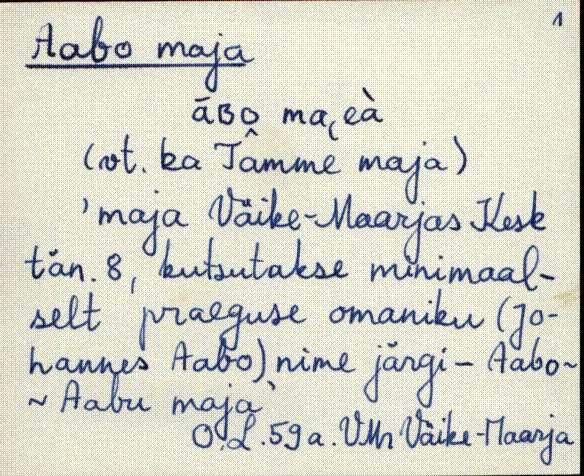 1
Aabo maja
āʙo ma(eà
(vt. ka Tamme maja)
'maja Väike-Maarjas Kesk
tän. 8, kutsutakse minimaal-
selt praeguse omaniku (Jo-
hannes Aabo) nime järgi – Aabo~
~ Aabu maja'
O.L. 59 a. VMr Väike-Maarja